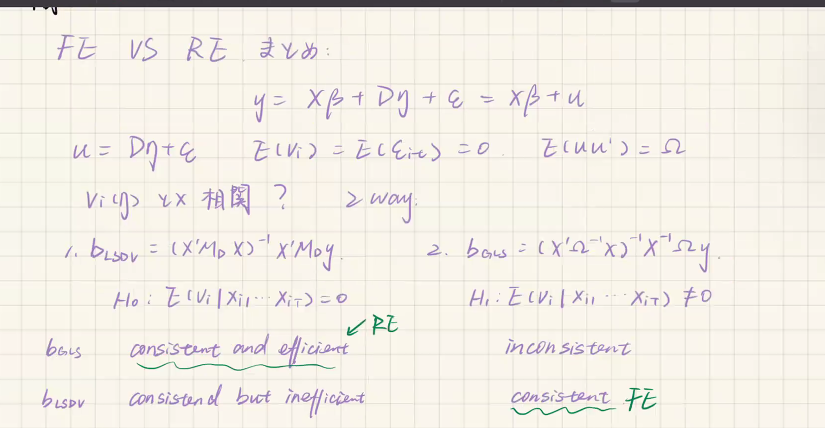 FE VS RE まとめ:
y = Xβ + Dη + ε = Xβ + u
u = Dη + ε E(Vi) = E(εit) = 0. E(uu') = Ω
Vi(η) とX 相関? 2 way:
1. bLSDV = (X'MD X)⁻¹ X'MD y. 2. bGLS = (X'Ω⁻¹X)⁻¹X⁻¹Ωy.
H₀: E(Vi | Xi1 ... XiT) = 0 H₁: E(Vi | Xi1 ... XiT) ≠ 0
↙ RE
bGLS consistent and efficient inconsistent
bLSDV consistend but inefficient consistent FE